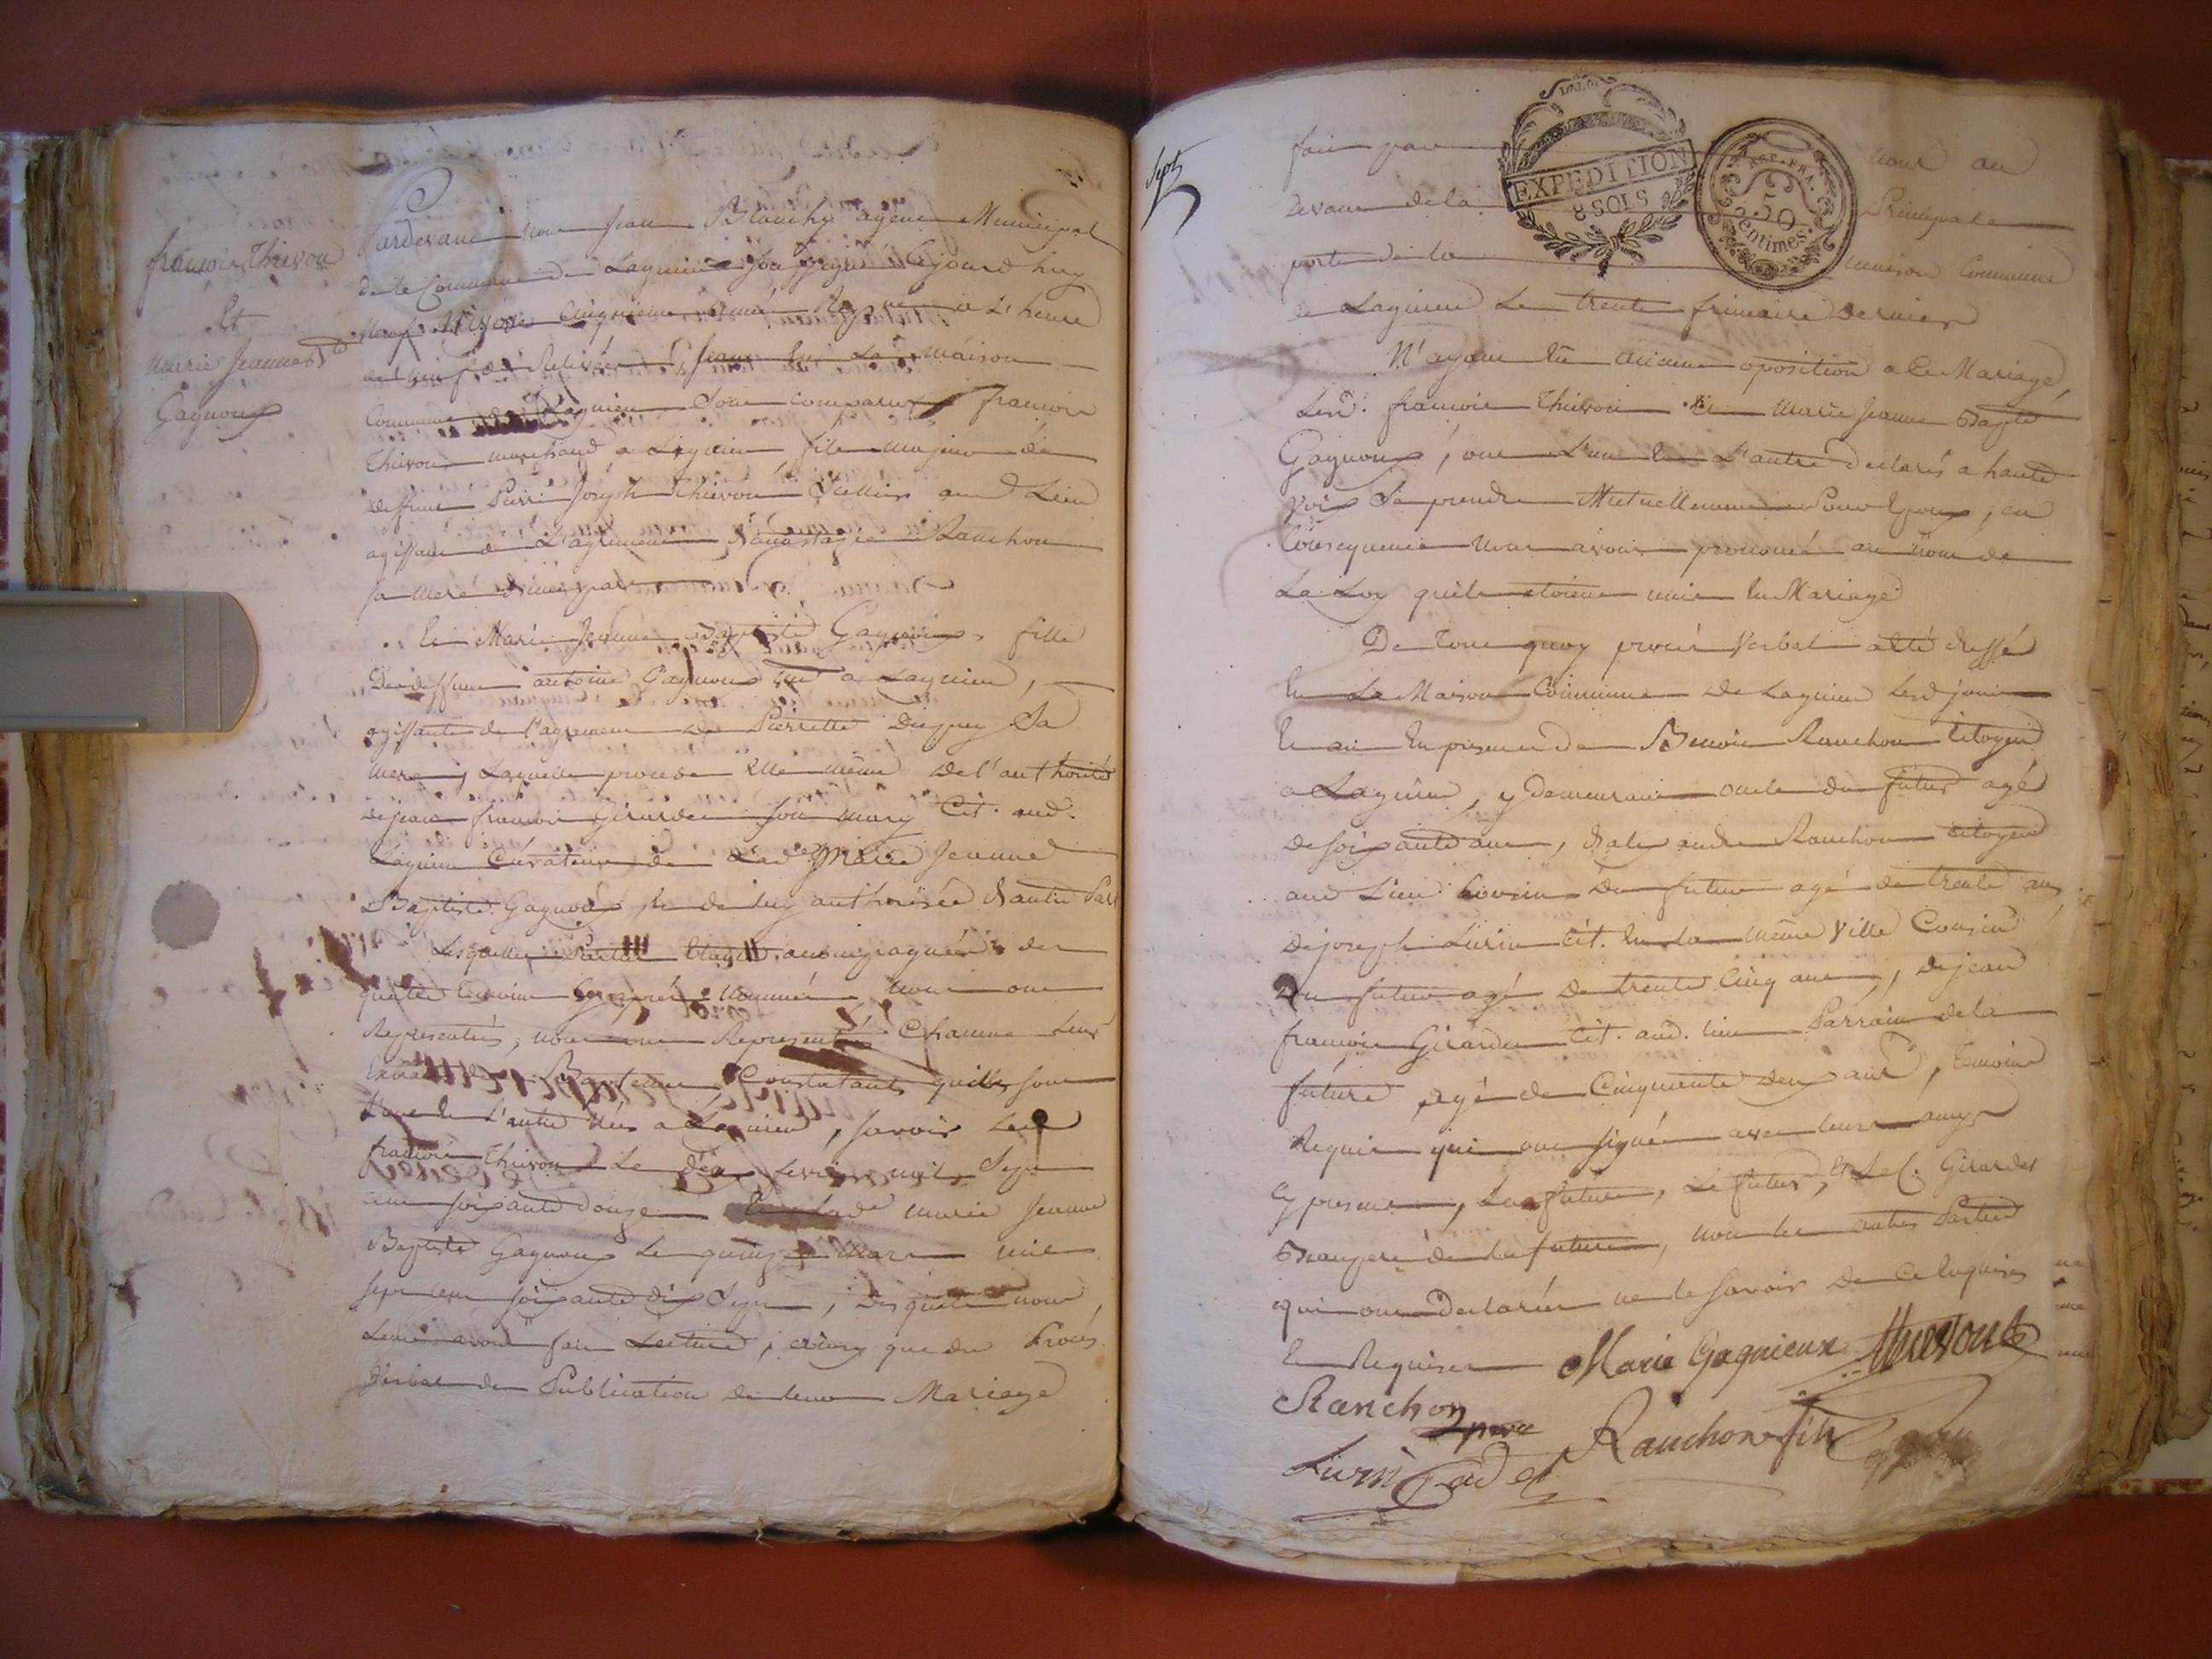 françois Thievon
Et
Marie Jeanne Bte
Gagnoux
Pardevant nous Jean Blanchy agent Municipal
de la Commune de Lagnieu Soussigné Cejourd'huy
Nivose Cinquieme année Rep.ne a L'heure
de Relevée, dans la maison
Commune de Lagnieu Sont comparus françois
Thievon marchand a Lagnieu fils majeur de
deffunt Pierre Joseph Thievon aud Lieu
agissant de L'agrement d'anastazie Ranchon
sa mere d'une part
Et Marie Jeanne Baptiste Gagnoux, fille
De deffunt antoine Gagnoux a Lagnieu,
agissante de l'agrement de Pierrette Sa
mere, Laquelle procede Elle même de l'authorité
de jean francois girardet son mary Cit. aud.
Lagnieu Curateur de Lade Marie Jeanne
Baptiste Gagnoux, et de luy authorisée d'autre Part
Lesquelles Parties accompagnées des
quatre temoins cy après nommés, nous ont
Representés, nous ont Representés Chacune Leur
Extrait de Baptême Constatants quilles sont
L'une et L'autre Nées a Lagnieu, savoir Led
francois Thievon Le fevrier mil Sept
cent soixante douze Et Lade marie Jeanne
Baptiste Gagnoux Le quinze Mars mil
sept cent soixante dix Sept, desquels nous
Leur avons fait Lecture, ainsy que du Procès
Verbal de Publication de leur Mariage
Sept
fait par nous au
Devant de la Principale
porte de la maison Commune
de Lagnieu Le trente frimaire Dernier
N'ayant Eu aucune oposition a Ce Mariage,
Lesd. francois Thievon Et Marie Jeanne Bapte
Gagnoux, ont L'un et L'autre declarés a haute
Voix Se prendre Mutuellement Pour Epoux, en
Consequence Nous avons prononcé au nom de
La Loy quils etoient unis En Mariage
De tout quoy procès Verbal a eté dressé
En La Maison Commune de Lagnieu Lesd jour
Et an En presence de Benoit Ranchon Citoyen
a Lagnieu, y Demeurant oncle du futur agé
de soixante ans, d'alexandre Ranchon Citoyen
aud Lieu Cousin Du futur agé de trente ans,
De joseph Livin Cit. En La même Ville Cousin
Du futur agé De trente Cinq ans, De jean
francois Girardet Cit. aud. lieu Parrain de la
future, agé de Cinquante Deux ans, temoins
Requis qui ont signés avec leurs amys
Cy presents, La future, Le futur, Et Le C. Girardet
Beaupere de la future, non les autres Parties
qui ont Declarées ne le savoir De Ce Enquises
Et Requises Marie Gagnieux Thievont
Ranchon pere
Ranchon fils
Livin Cadet
EXPEDITION
8 SOLS
REP. FRA.
50
Centimes